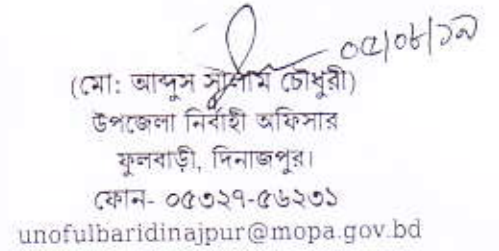 ০৫/০৮/১৯
(মো: আব্দুস সালাম চৌধুরী)
উপজেলা নির্বাহী অফিসার
ফুলবাড়ী, দিনাজপুর।
ফোন- ০৫৩২৭-৫৬২৩১
unofulbaridinajpur@mopa.gov.bd